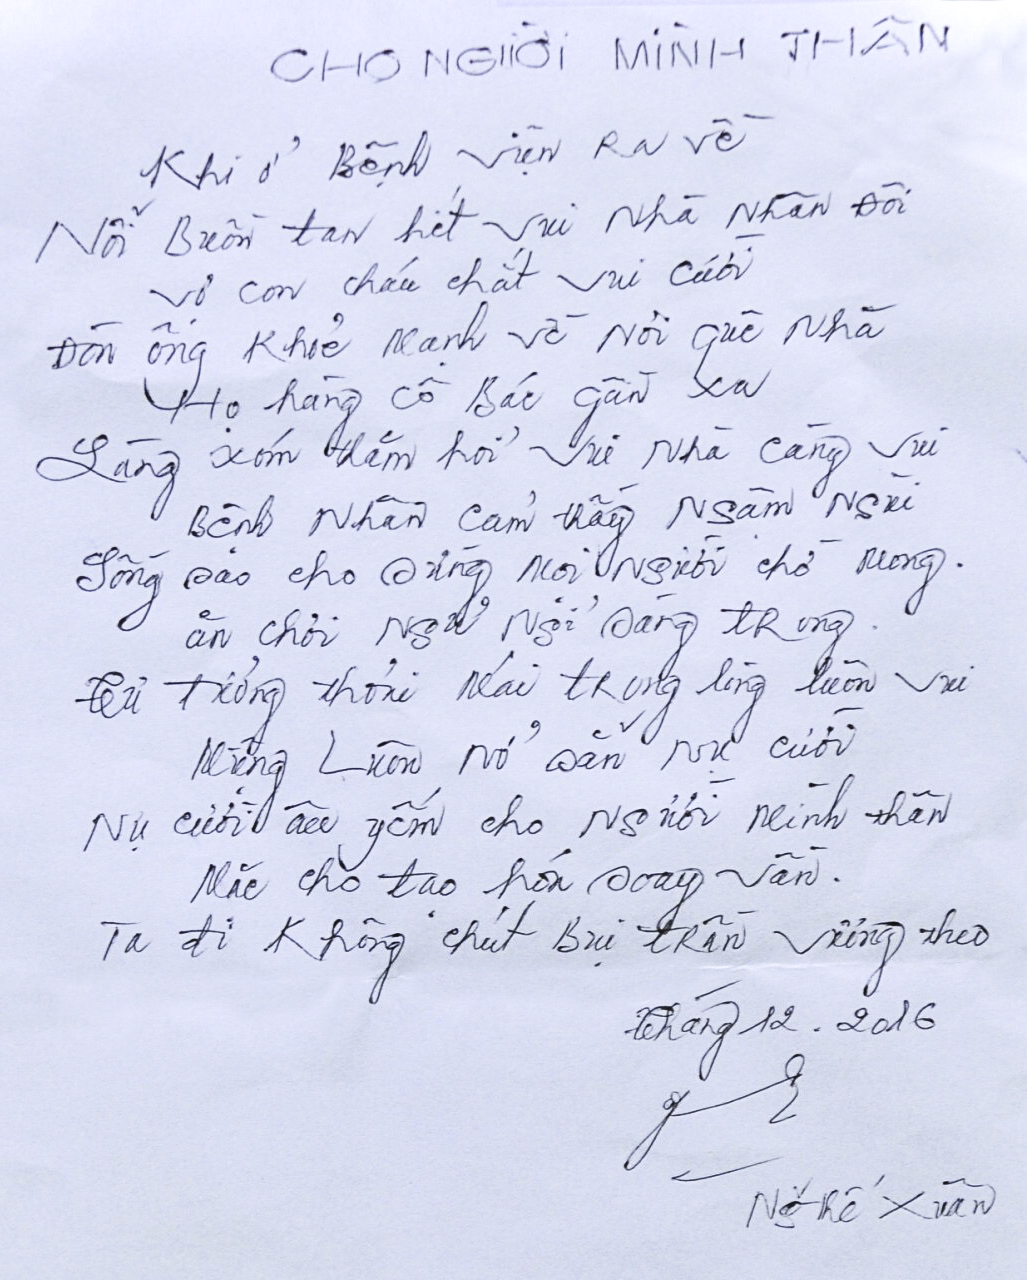 CHO NGƯỜI MÌNH THÂN
Khi ở Bệnh viện ra về
Nỗi buồn tan hết vui nhà nhân đôi
vợ con cháu chắt vui cười
Đón ông khỏe mạnh về nơi quê nhà
Họ hàng cô Bác gần xa
Làng xóm thăm hỏi vui nhà càng vui
Bệnh nhân cảm thấy ngậm ngùi
Sống sao cho đúng mọi người chờ mong.
ăn chơi ngủ nghỉ đàng trong.
Tư tưởng thoải mái trong lòng luôn vui
Miệng Luôn nở sẵn nụ cười
Nụ cười âu yếm cho người mình thân
Mặc cho tạo hóa xoay vần.
Ta đi không chút Bụi trần vướng theo
Tháng 12.2016
Xuân